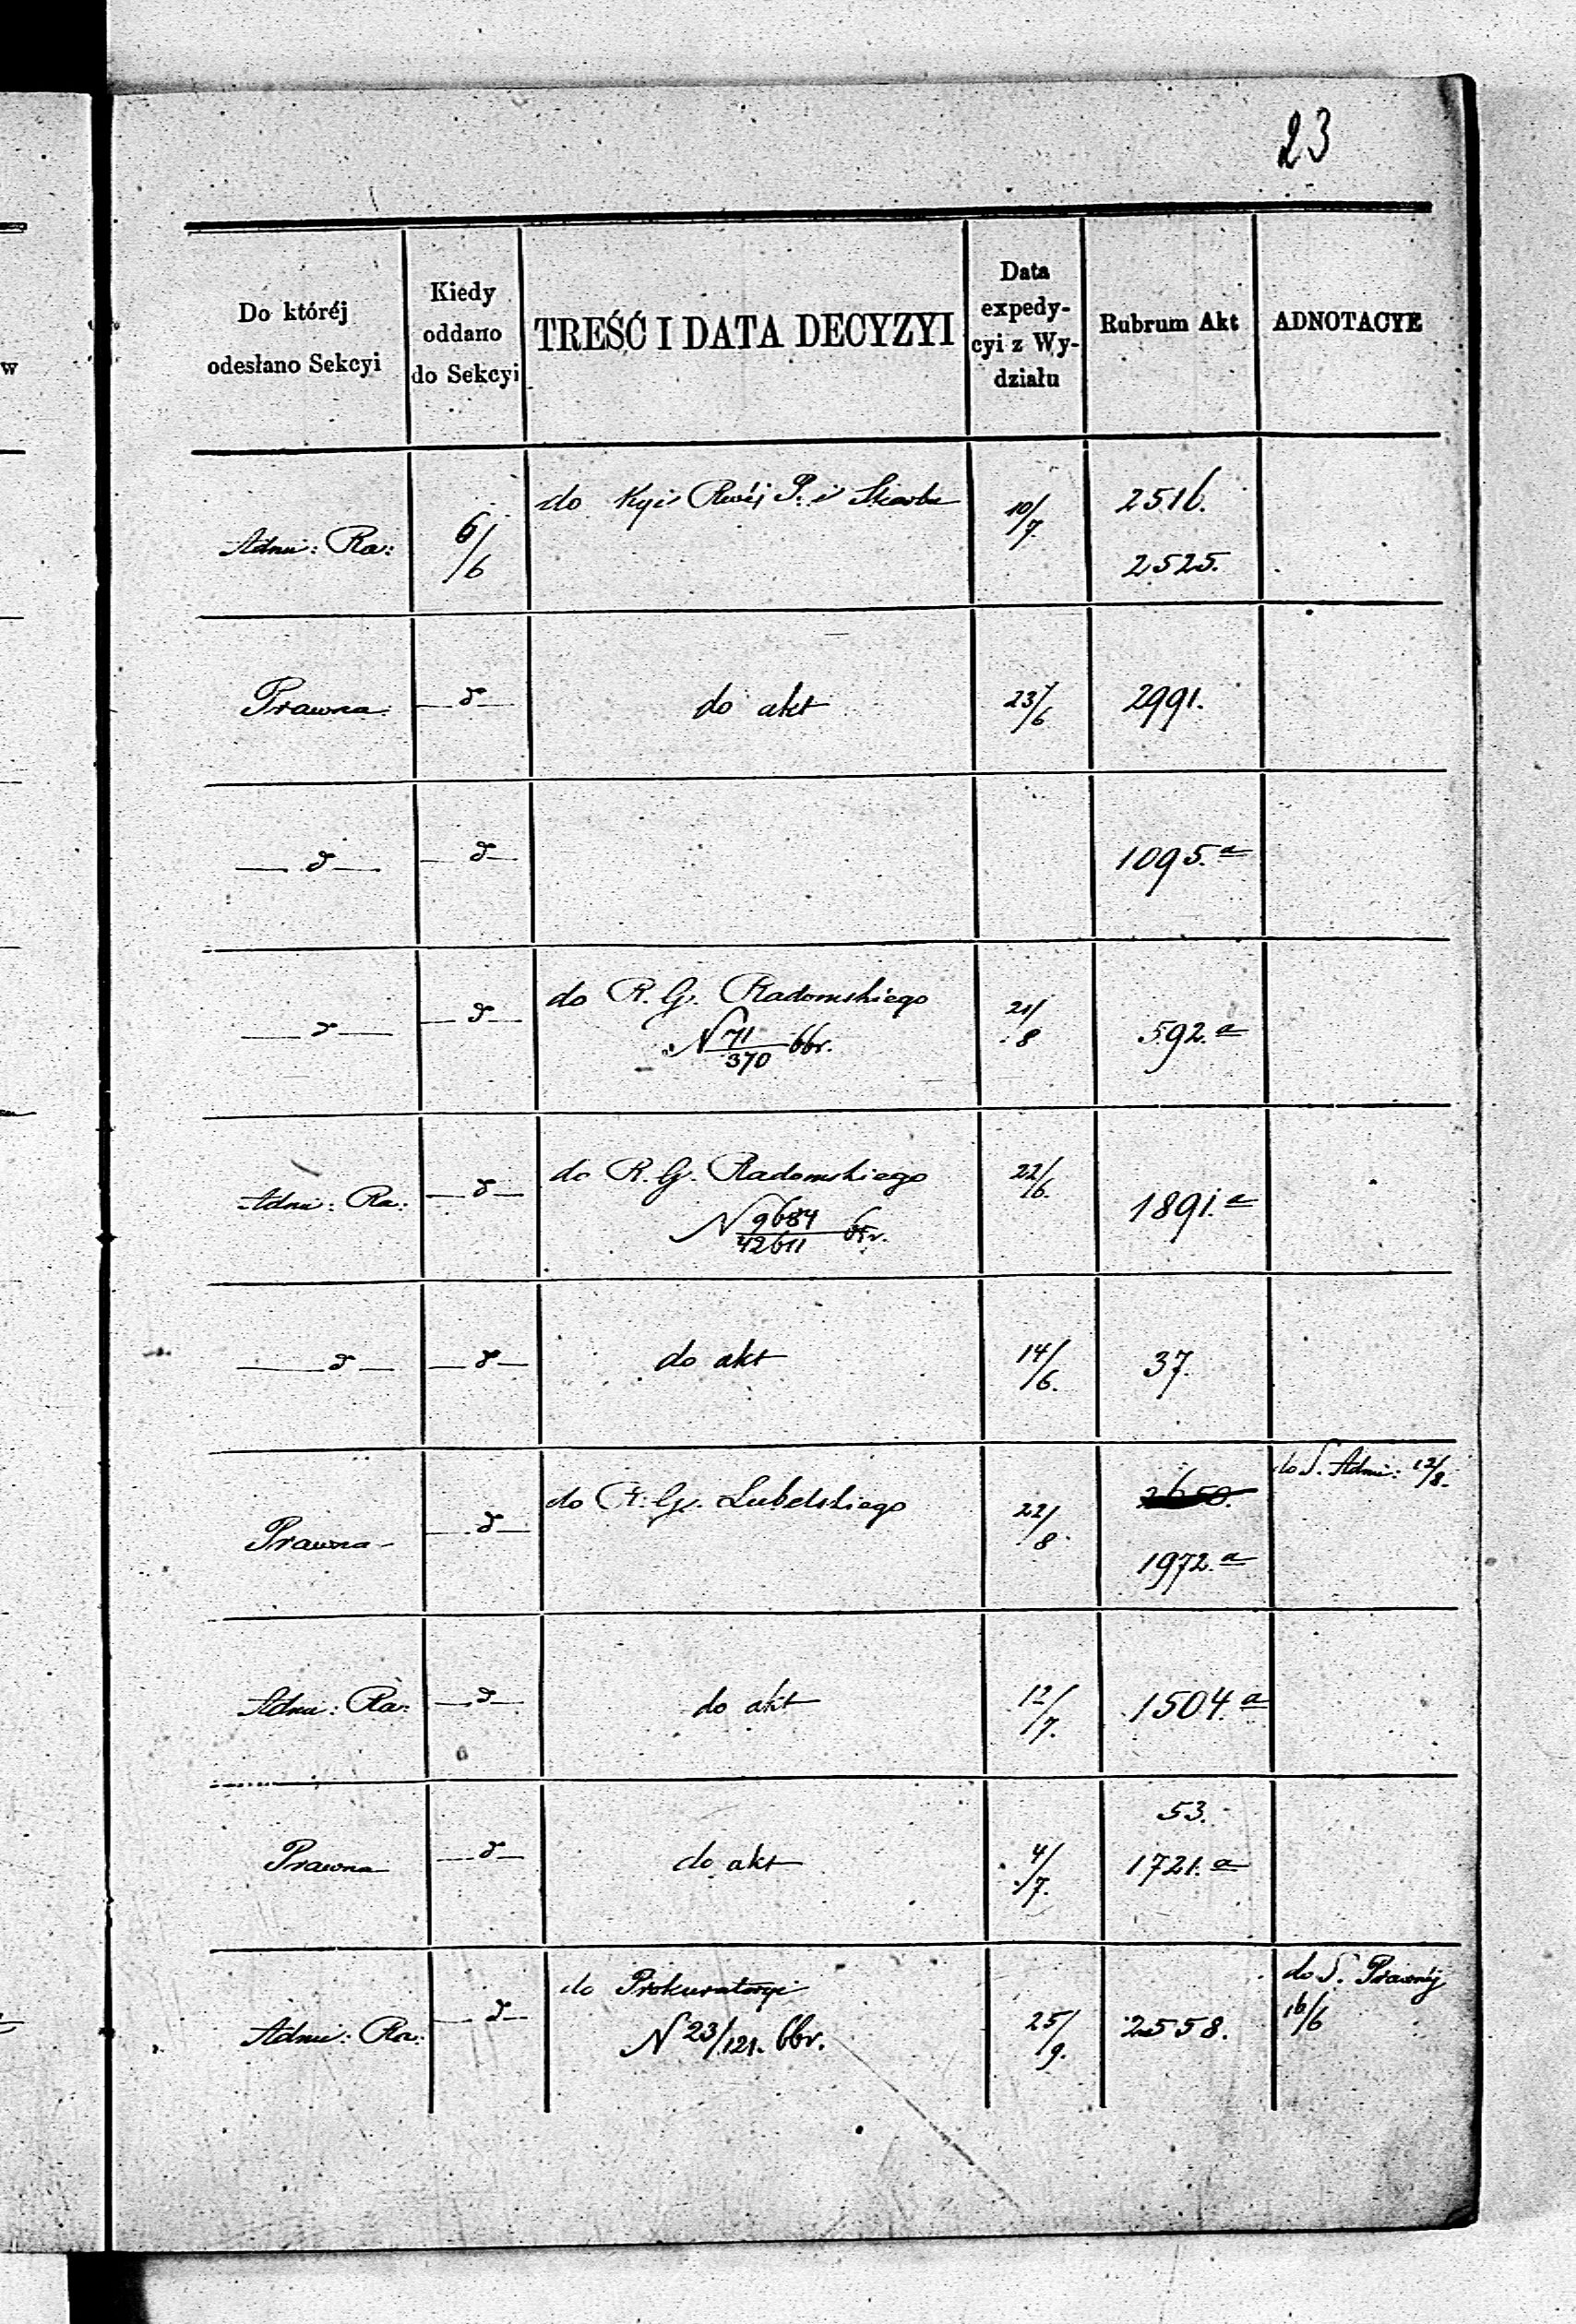 23
Do któréj odesłano Sekcyi
Kiedy oddano do Sekcyi
TREŚĆ I DATA DECYZYI
Data expedycyi z Wydziału
Rubrum Akt
ADNOTACYE
do Kyi Rwéj P. i Skarbu
Adm: Ra:
6/6
10/7.
2516.
2525.
Prawna
—d—
do akt
23/6
2991.
—d—
—d—
1095.a
do R. G. Radomskiego
—d—
—d—
N 71/370 66r.
21/8
592.a
do R. G. Radomskiego
Adm: Ra:
—d—
N 9684/42611 65r.
22/6.
1891.a
—d—
—d—
do akt
14/6.
37.
do S. Adm: 12/8.
do R. G. Lubelskiego
2650.
Prawna
—d—
22/8.
1972.a
Adm: Ra:
—d—
do akt
12/7.
1504.a
53.
Prawna
—d—
do akt
4/7.
1721.a
do Prokuratoryi
do S. Prawnéj
Adm: Ra:
—d—
N 23/121. 66r.
25/9.
2558.
16/6